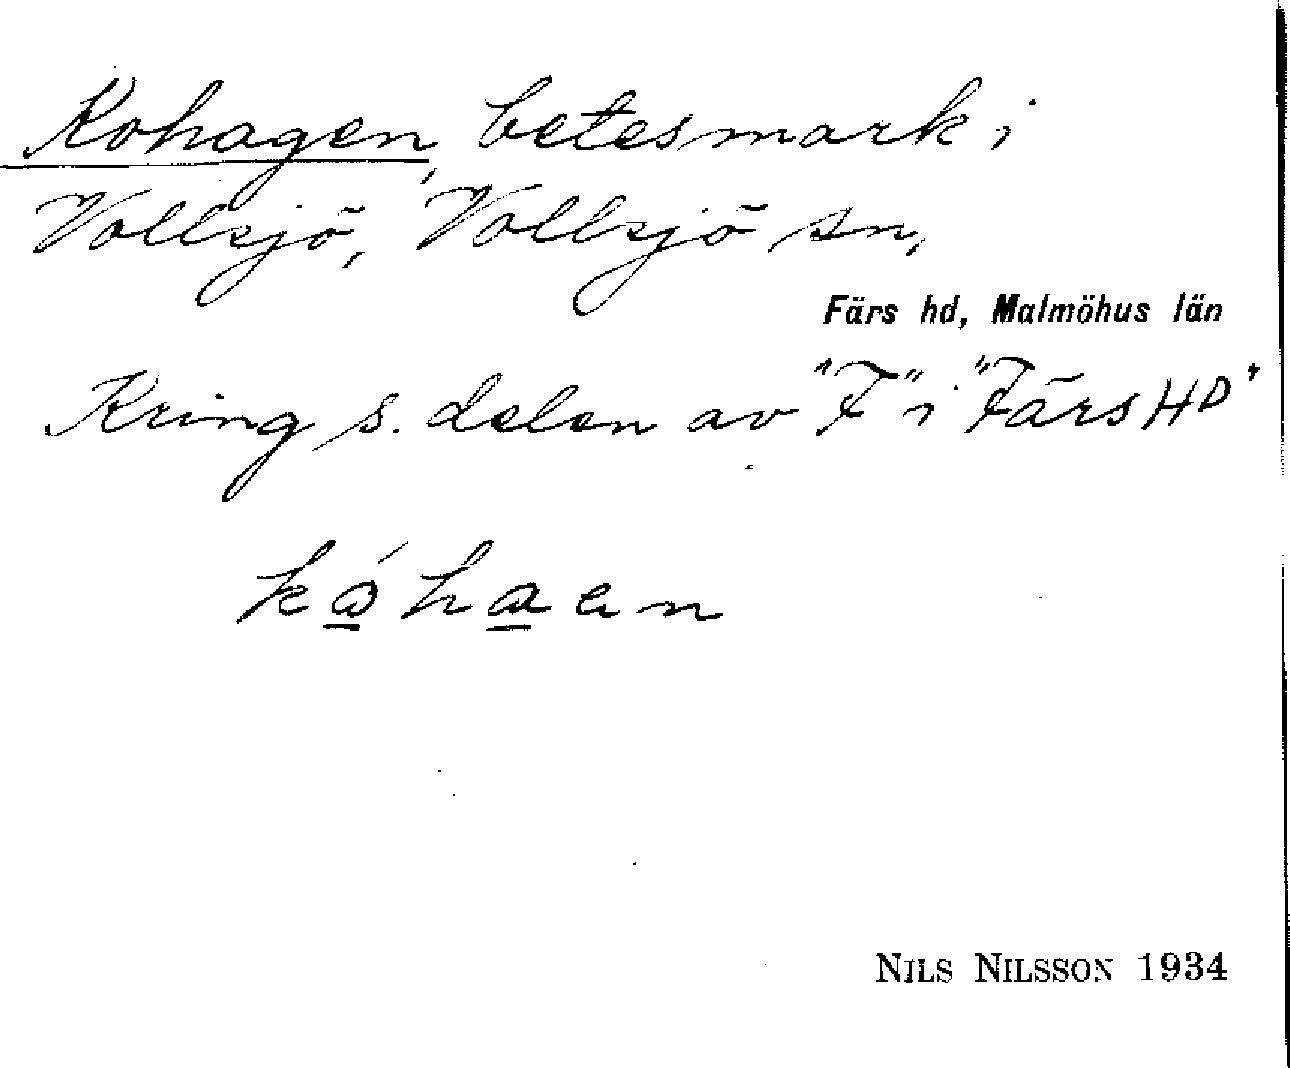 Kohagen, betesmark i
Vollsjö, Vollsjö sn,
Färs hd, Malmöhus län
Kring s. delen av "F" i "Färs HD"
NILS NILSSON 1934